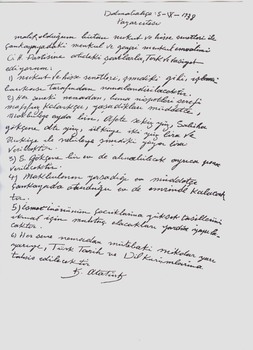 Dolmabahçe : 5-IX-1938
Pazartesi
malik olduğum bütün nukut ve hisse senetleri ile
Çankayadaki menkul ve gayri menkul emvalimi
C. H. Partisine atideki şartlarla, terk ve vasiyet
ediyorum:
1) nukut ve hisse senetleri, şimdiki gibi, iş bankası
tarafından nemalandırılacaktır.
2) Her seneki nemadan, bana nisbetleri şerefi
mahfuz kaldıkça, yaşadıkları müddetçe,
Makbuleye ayda bin, Afete sekiz yüz, Sabiha
Gökçene altı yüz, Ülküye iki yüz lira ve
Rukiye ile Nebileye şimdiki yüzer lira
verilecektir.
3) S. Gökçene bir ev de alınabilecek ayrıca para
verilecektir.
4) Makbulenin yaşadığı müddetçe
Çankayada oturduğu ev de emrinde kalacak
tır.
5) ismet inönünün çocuklarına yüksek tahsillerini
ikmal için muhtaç olacakları yardım yapıla
caktır.
6) Her sene nemadan mütebaki miktar yarı
yarıya, Türk Tarih ve Dil Kurumlarına
tahsis edilecektir
K. Atatürk